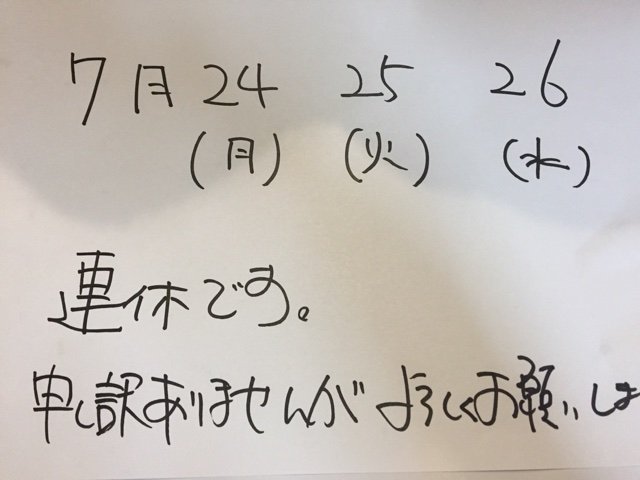 7月24 25 26
(月) (火) (水)
連休です。
申し訳ありませんがよろしくお願いしま